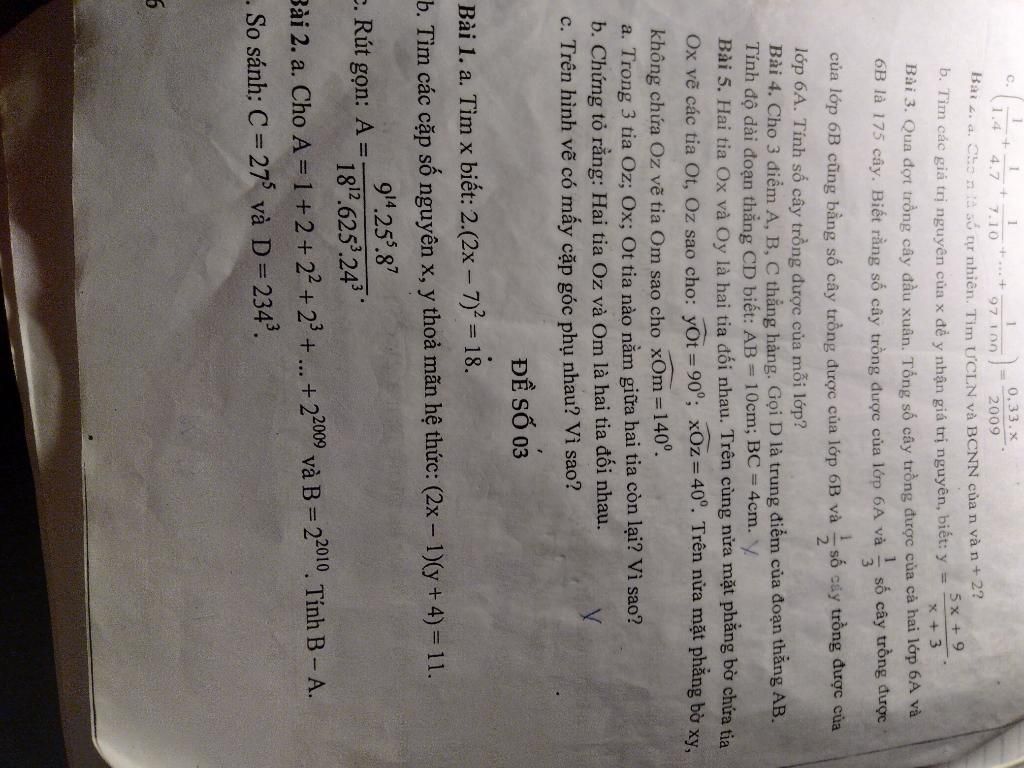 c. $\left(\frac{1}{1.4} + \frac{1}{4.7} + \frac{1}{7.10} + ... + \frac{1}{97.100}\right) = \frac{0,33.x}{2009}$.
Bài 2. a. Cho n là số tự nhiên. Tìm ƯCLN và BCNN của n và n + 2?
b. Tìm các giá trị nguyên của x để y nhận giá trị nguyên, biết: $y = \frac{5x + 9}{x + 3}$.
Bài 3. Qua đợt trồng cây đầu xuân. Tổng số cây trồng được của cả hai lớp 6A và
6B là 175 cây. Biết rằng số cây trồng được của lớp 6A và $\frac{1}{3}$ số cây trồng được
của lớp 6B cũng bằng số cây trồng được của lớp 6B và $\frac{1}{2}$ số cây trồng được của
lớp 6A. Tính số cây trồng được của mỗi lớp?
Bài 4. Cho 3 điểm A, B, C thẳng hàng. Gọi D là trung điểm của đoạn thẳng AB.
Tính độ dài đoạn thẳng CD biết: AB = 10cm; BC = 4cm.
Bài 5. Hai tia Ox và Oy là hai tia đối nhau. Trên cùng nửa mặt phẳng bờ chứa tia
Ox vẽ các tia Ot, Oz sao cho: $\widehat{yOt} = 90^0$; $\widehat{xOz} = 40^0$. Trên nửa mặt phẳng bờ xy,
không chứa Oz vẽ tia Om sao cho $\widehat{xOm} = 140^0$.
a. Trong 3 tia Oz; Ox; Ot tia nào nằm giữa hai tia còn lại? Vì sao?
b. Chứng tỏ rằng: Hai tia Oz và Om là hai tia đối nhau.
c. Trên hình vẽ có mấy cặp góc phụ nhau? Vì sao?
ĐỀ SỐ 03
Bài 1. a. Tìm x biết: $2.(2x - 7)^2 = 18$.
b. Tìm các cặp số nguyên x, y thoả mãn hệ thức: (2x − 1)(y + 4) = 11.
c. Rút gọn: $A = \frac{9^{14}.25^5.8^7}{18^{12}.625^3.24^3}$.
Bài 2. a. Cho $A = 1 + 2 + 2^2 + 2^3 + ... + 2^{2009}$ và $B = 2^{2010}$. Tính B − A.
. So sánh: $C = 27^5$ và $D = 234^3$.
6